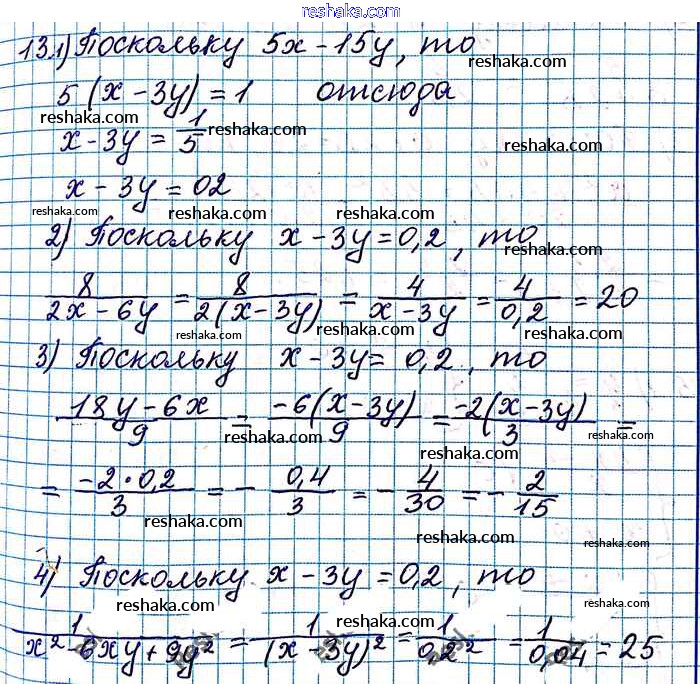 reshaka.com
13.1) Поскольку 5x - 15y, то
5(x - 3y) = 1 отсюда
reshaka.com
x - 3y = 1/5 reshaka.com
reshaka.com
x - 3y = 02
reshaka.com reshaka.com reshaka.com reshaka.com
2) Поскольку x - 3y = 0,2, то
reshaka.com
8/(2x - 6y) = 8/(2(x - 3y)) = 4/(x - 3y) = 4/0,2 = 20
reshaka.com reshaka.com reshaka.com
3) Поскольку x - 3y = 0,2, то
(18y - 6x)/9 = (-6(x - 3y))/9 = (-2(x - 3y))/3 =
reshaka.com reshaka.com reshaka.com
= (-2 · 0,2)/3 = - 0,4/3 = - 4/30 = - 2/15
reshaka.com reshaka.com reshaka.com
reshaka.com
4) Поскольку x - 3y = 0,2, то
reshaka.com reshaka.com reshaka.com
1/(x² - 6xy + 9y²) = 1/(x - 3y)² = 1/0,2² = 1/0,04 = 25